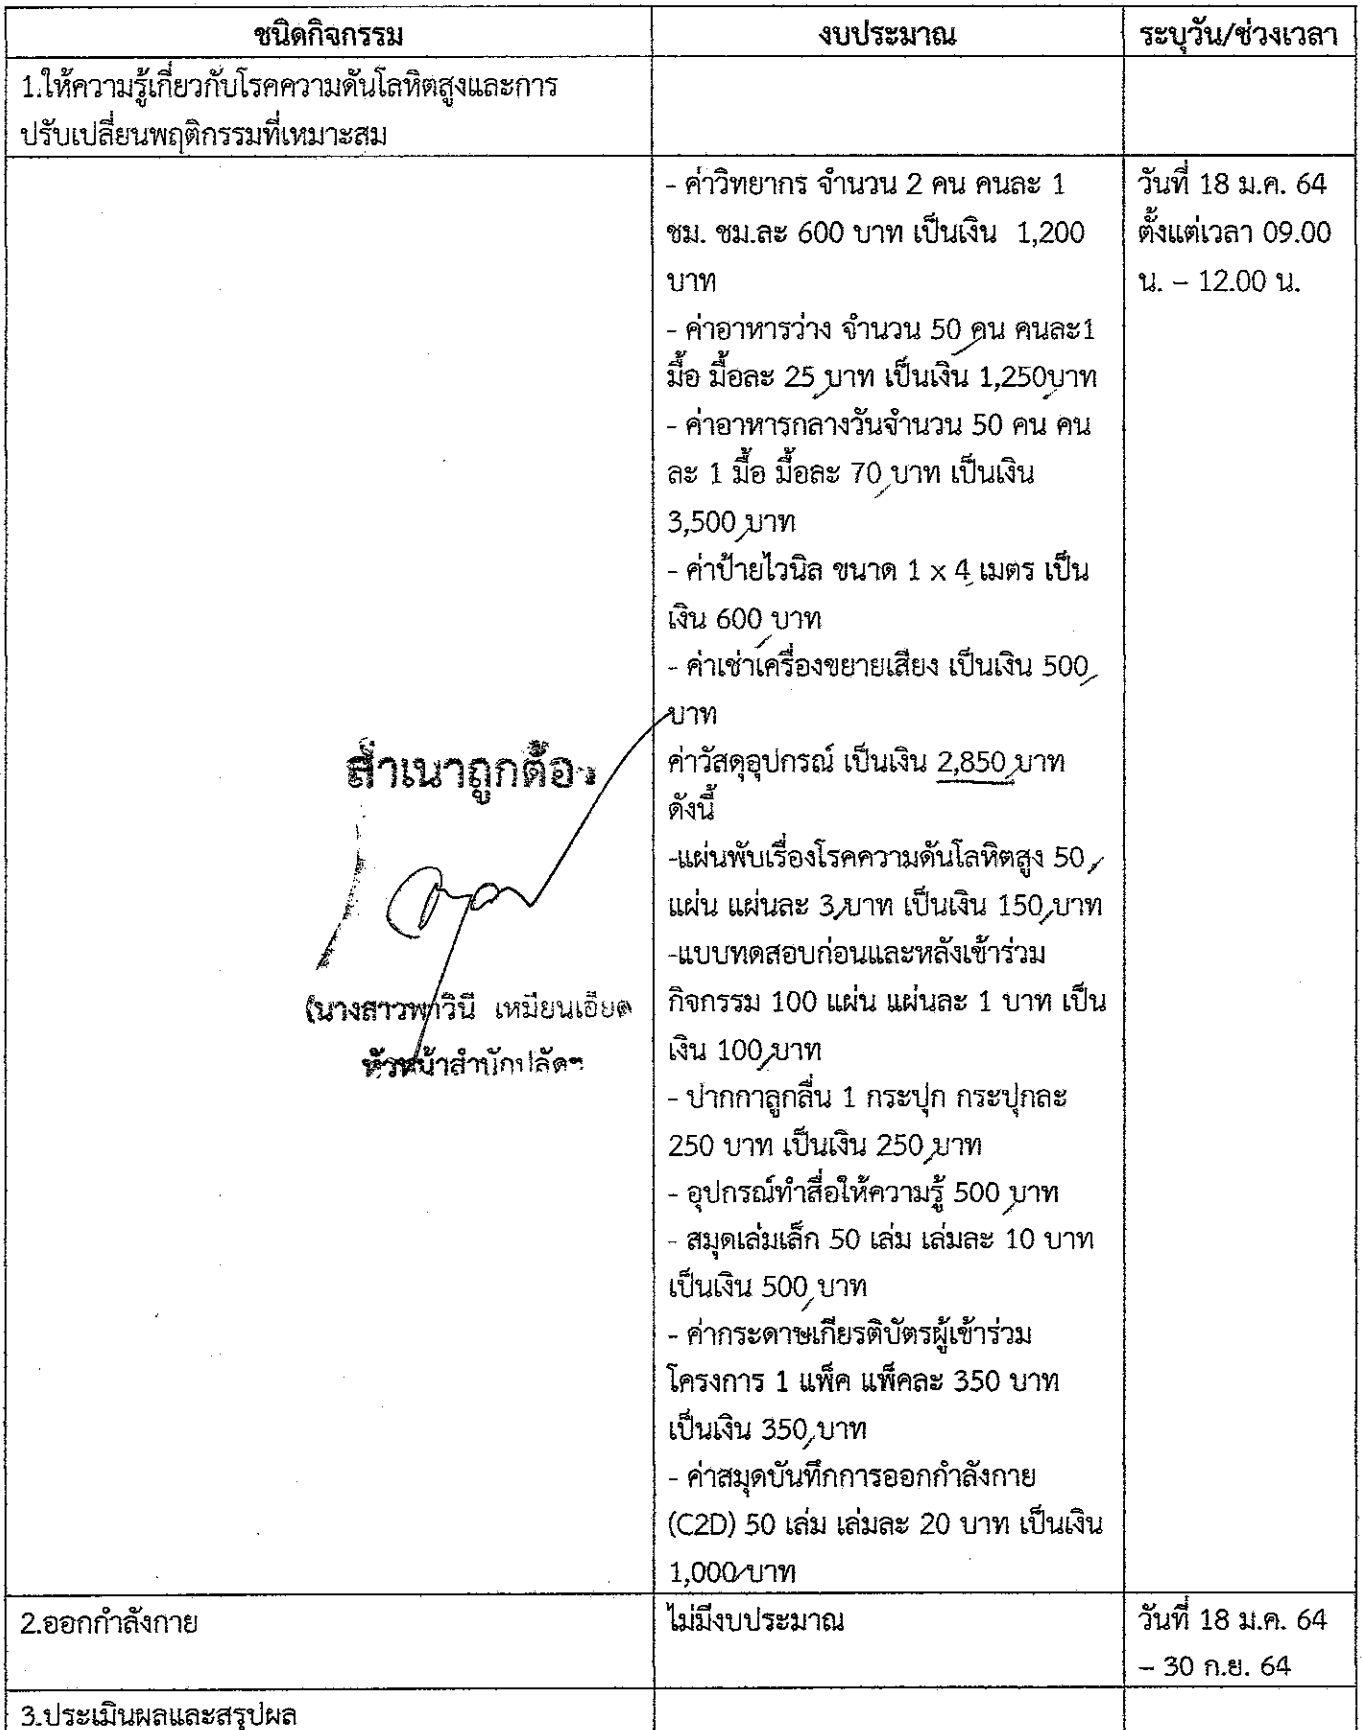 ชนิดกิจกรรม
งบประมาณ
ระบุวัน/ช่วงเวลา
1.ให้ความรู้เกี่ยวกับโรคความดันโลหิตสูงและการ
ปรับเปลี่ยนพฤติกรรมที่เหมาะสม
- ค่าวิทยากร จำนวน 2 คน คนละ 1
ชม. ชม.ละ 600 บาท เป็นเงิน 1,200
บาท
- ค่าอาหารว่าง จำนวน 50 คน คนละ1
มื้อ มื้อละ 25 บาท เป็นเงิน 1,250บาท
- ค่าอาหารกลางวันจำนวน 50 คน คน
ละ 1 มื้อ มื้อละ 70 บาท เป็นเงิน
3,500 บาท
- ค่าป้ายไวนิล ขนาด 1 x 4 เมตร เป็น
เงิน 600 บาท
- ค่าเช่าเครื่องขยายเสียง เป็นเงิน 500
บาท
ค่าวัสดุอุปกรณ์ เป็นเงิน 2,850 บาท
ดังนี้
-แผ่นพับเรื่องโรคความดันโลหิตสูง 50
แผ่น แผ่นละ 3 บาท เป็นเงิน 150 บาท
-แบบทดสอบก่อนและหลังเข้าร่วม
กิจกรรม 100 แผ่น แผ่นละ 1 บาท เป็น
เงิน 100 บาท
- ปากกาลูกลื่น 1 กระปุก กระปุกละ
250 บาท เป็นเงิน 250 บาท
- อุปกรณ์ทำสื่อให้ความรู้ 500 บาท
- สมุดเล่มเล็ก 50 เล่ม เล่มละ 10 บาท
เป็นเงิน 500 บาท
- ค่ากระดาษเกียรติบัตรผู้เข้าร่วม
โครงการ 1 แพ็ค แพ็คละ 350 บาท
เป็นเงิน 350 บาท
- ค่าสมุดบันทึกการออกกำลังกาย
(C2D) 50 เล่ม เล่มละ 20 บาท เป็นเงิน
1,000 บาท
วันที่ 18 ม.ค. 64
ตั้งแต่เวลา 09.00
น. – 12.00 น.
สำเนาถูกต้อง
(นางสาวพาวินี เหมียนเอียด
หัวหน้าสำนักปลัดฯ
2.ออกกำลังกาย
ไม่มีงบประมาณ
วันที่ 18 ม.ค. 64
– 30 ก.ย. 64
3.ประเมินผลและสรุปผล